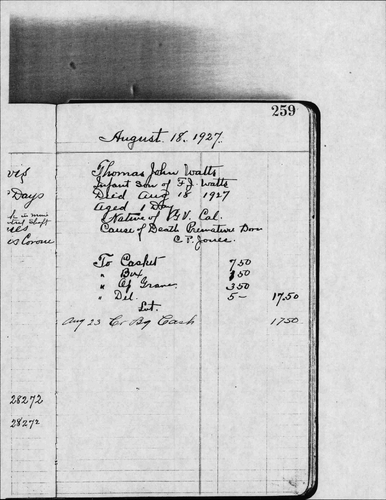 259
August 18, 1927.
Thomas John Watts
Infant son of F.J. Watts
Died Aug 18 1927
Aged 1 Day
Native of Cal.
Cause of Death Premature Born
C P. Jones.
Days
To Casket 7 50
" Box 1 50
" Of Grave 3 50
" Del. 5 — 17.50
Aug 23 Cr By Cash 17 50
28272
28272